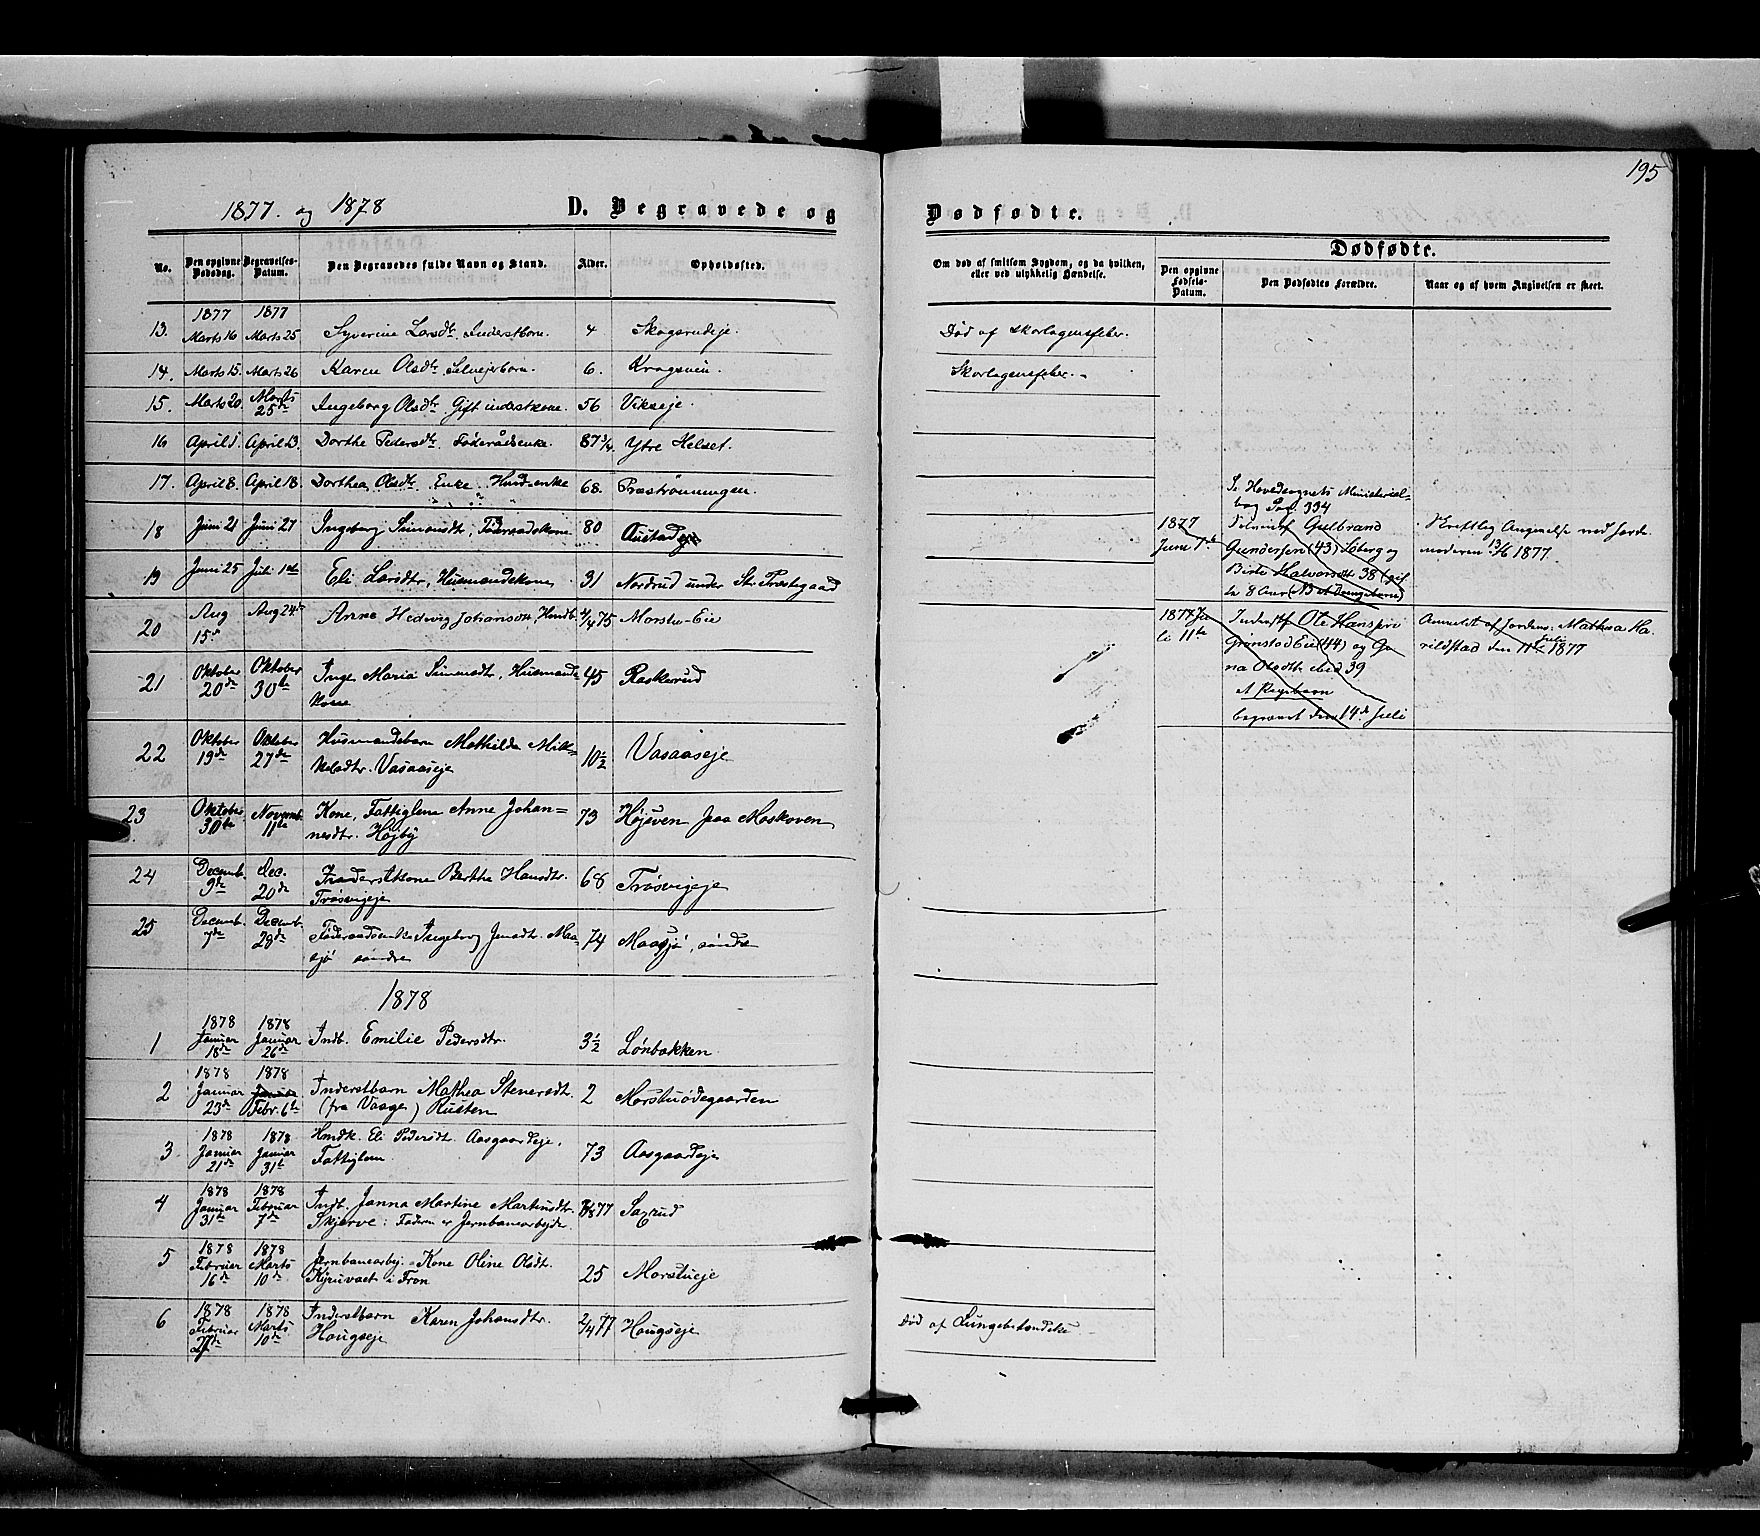 195
1877. og 1878
D. Begravede og
Dødfødte.
Dødfødte.
No.
Den opgivne Dødsdag.
Begravelses-Datum.
Den Begravedes fulde Navn og Stand.
Alder.
Opholdssted.
Om død af smitsom Sygdom, og da hvilken, eller ved ulykkelig Hændelse.
Den opgivne Fødsels-Datum.
Den Dødfødtes Forældre.
Naar og af hvem Angivelsen er skeet.
1877 1877
13. Marts 16 Marts 25 Syverine Larsdtr. Inderstborn. 4 Skogsrudeje. Død af Skarlagensfeber.
14. Marts 15. Marts 26 Karen Olsdtr. Selvejerborn. 6. Kragsvein. Skarlagensfeber.
15. Marts 20. Marts 25de Ingeborg Olsdtr. Gift inderstkone. 56 Vikseje.
16 April 1. April 13. Dorthe Pedersdtr. Føderådsenke. 87 3/4. Ytre Helset.
17. April 8. April 18. Dorthea Olsdtr. Enke. Husd-enke 68. Præstrønningen.
18 Juni 21 Juni 27 Ingeborg Simensdtr, Føderaadskone 80
19 Juni 25 Juli 1ste Eli Larsdtr, Husmandskone 31 Nordrud under St. Præstegaard
20 Aug 15de Aug 24de Anne Hedevig Johansdtr, Husdb. 4/4 75 Morstu-Eie
21 Oktober 20de Oktober 30te Inge Maria Simensdtr, Husmands
kone 45 Raskerud
22 Oktober 19de Oktober 27de Husmandsbarn Mathilde Mik=
kelsdtr. Vasaaseje 10½ Vasaaseje
23 Oktober 30te Novemb. 11te Kone, Fattiglem Anne Johan=
nesdtr. Højby 73 Højsveen paa Moskoven
24 Decemb. 9de Dec. 20de Inderstkone Berthe Hansdtr.
Trøsvigeje 68 Trøsvigeje
25 Decemb. 7de Decemb. 28de Føderaadsenke Ingeborg Jensdtr. Maa=
sjø søndre 74 Maasjø, søndre
Se Hovedsognets Ministerial-
bog Pag. 334
1877 Juni 1de
Gulbrand
Gundersen (43) Løberg og
Birte Halvorsdtr 38 (gif
te 8 Aar)
Skriftlig Angivelse ved Jorde
moderen 13/6 1877.
1877 Ju
li 11te
Inderst Ole Hans
Grønstad Eie (44) og Gu
na Olsdtr ibid 39
Et Pigebarn
begravet den 14de Juli
Anmeldt af Jordem: Mathea Ha
rildstad den 11te Juli 1877
1878
1 1878 Januar 18de 1878 Januar 26de Indb. Emilie Pedersdtr. 3½ Lønbakken.
2 1878 Januar 23de 1878 Januar Febr. 6te Inderstbarn Mathea Stenersdtr.
(fra Vaage) Rusten 2 Morstuødegaarden
3 1878 Januar 21de 1878 Januar 31te Hmdk. Eli Pedersdtr. Aasgaardeje,
Fattiglem. 73 Aasgaardeje
4 1878 Januar 31te 1878 Februar 7de Indb. Janna Martine Martinsdtr.
Skjerve: Faderen er Jernbanearbejder 1877 Saxrud
5 1878 Februar 16de 1878 Marts 10de Jernbanearbj.-Kone Oline Olsdtr.
i Fron 25 Morstueje
6 1878 Februar 27de 1878 Marts 10de Inderstbarn Karen Johansdtr.
Haugseje 2/4 77 Haugseje Død af Lungebetændelse